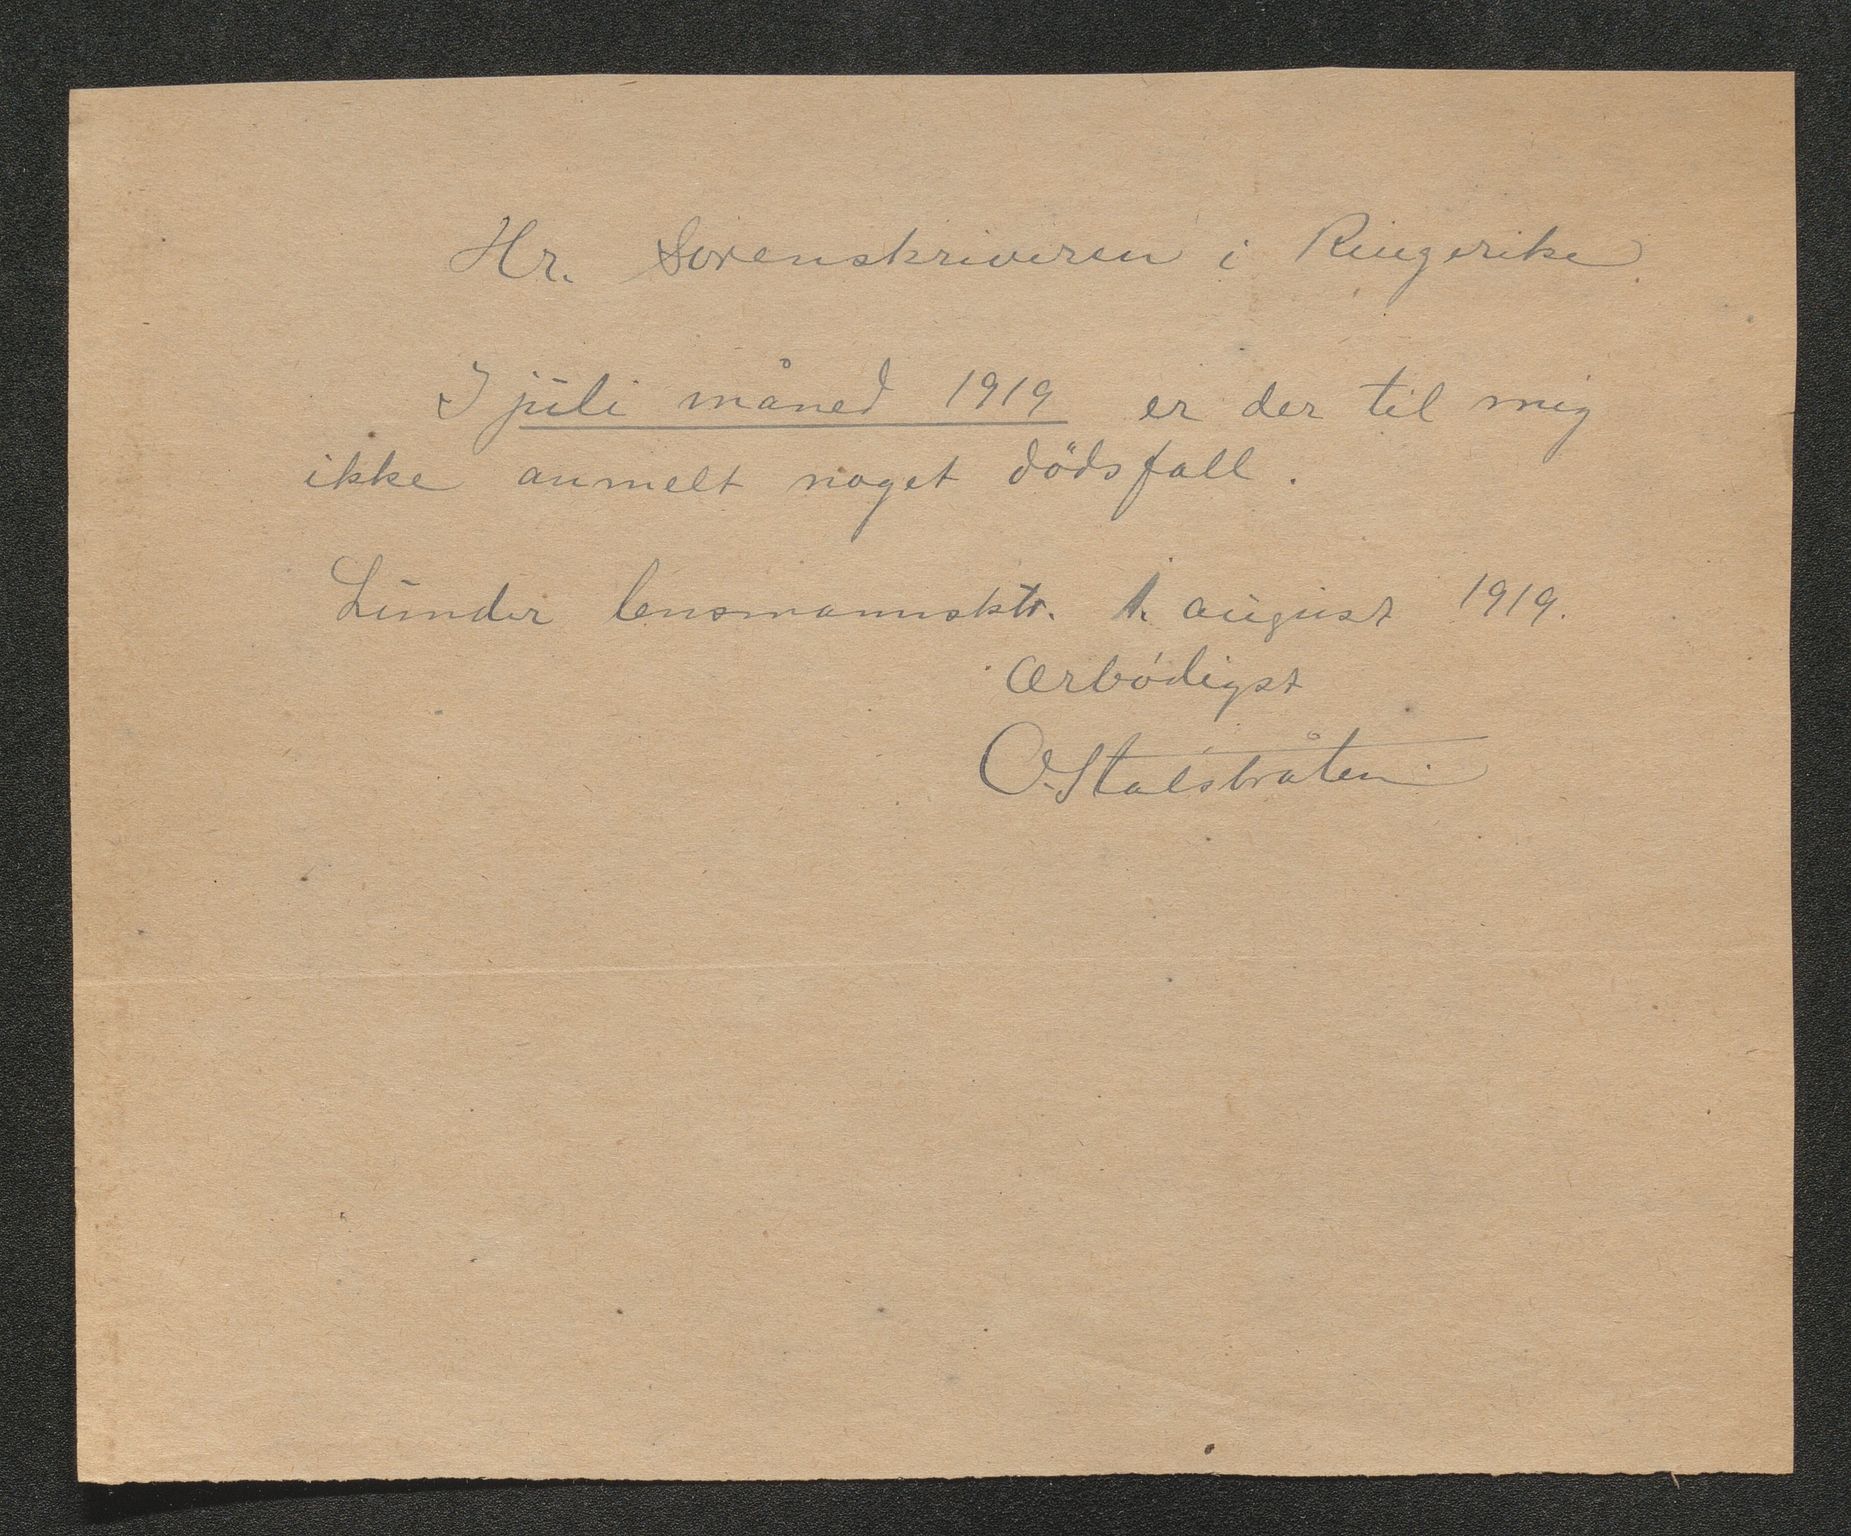 Hr. Sorenskriveren i Ringerike.
I juli måned 1919 er der til mig
ikke anmelt noget dödsfall.
Lunder lensmannsktr. 1. august 1919.
Ærbödigst
O. Stalsbråten.